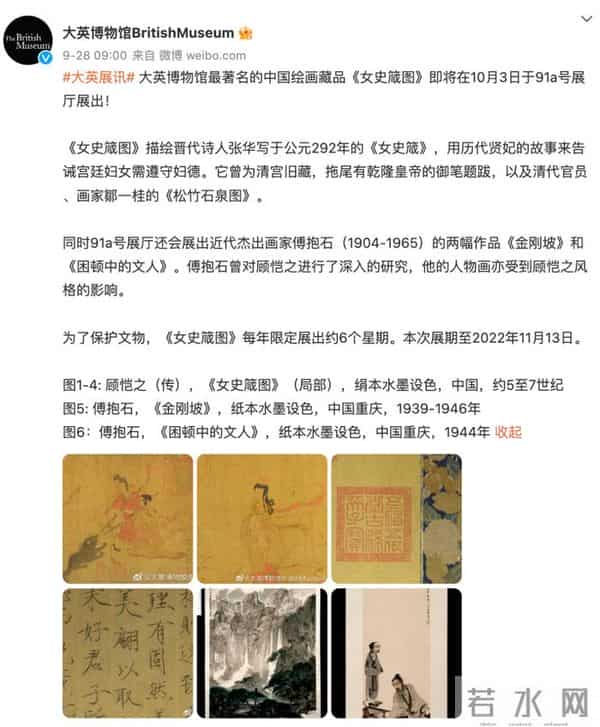 The British Museum
大英博物馆BritishMuseum
9-28 09:00 来自 微博 weibo.com
#大英展讯# 大英博物馆最著名的中国绘画藏品《女史箴图》即将在10月3日于91a号展
厅展出！
《女史箴图》描绘晋代诗人张华写于公元292年的《女史箴》，用历代贤妃的故事来告
诫宫廷妇女需遵守妇德。它曾为清宫旧藏，拖尾有乾隆皇帝的御笔题跋，以及清代官员
、画家鄒一桂的《松竹石泉图》。
同时91a号展厅还会展出近代杰出画家傅抱石（1904-1965）的两幅作品《金刚坡》和
《困顿中的文人》。傅抱石曾对顾恺之进行了深入的研究，他的人物画亦受到顾恺之风
格的影响。
为了保护文物，《女史箴图》每年限定展出约6个星期。本次展期至2022年11月13日。
图1-4: 顾恺之（传），《女史箴图》（局部），绢本水墨设色，中国，约5至7世纪
图5: 傅抱石，《金刚坡》，纸本水墨设色，中国重庆，1939-1946年
图6：傅抱石，《困顿中的文人》，纸本水墨设色，中国重庆，1944年 收起
理有固然
美翩以取
来好君子
若水网